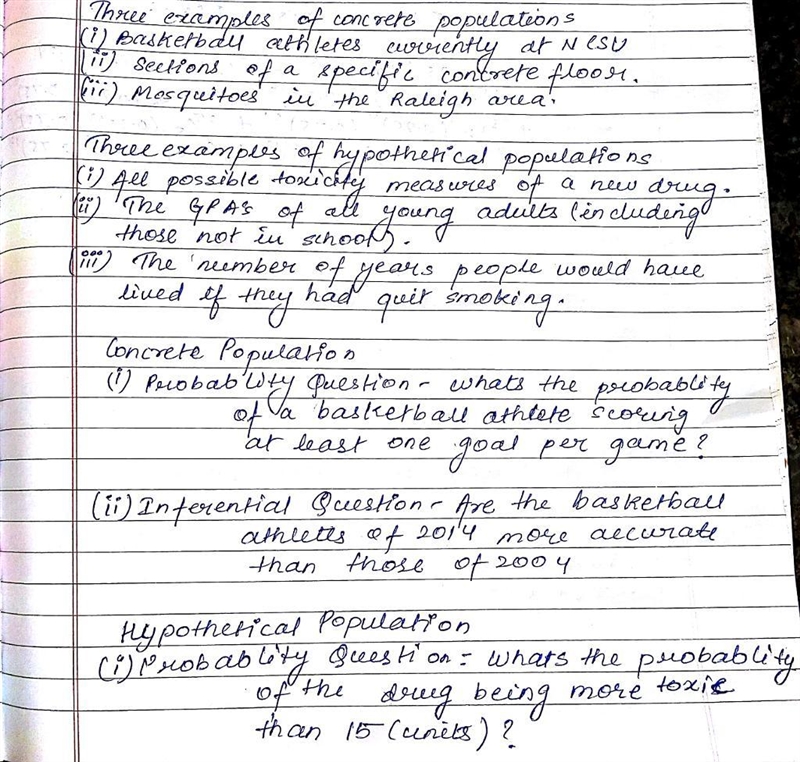 Three examples of concrete populations
(i) Basketball athletes currently at NCSU
(ii) Sections of a specific concrete floor.
(iii) Mosquitoes in the Raleigh area.
Three examples of hypothetical populations
(i) All possible toxicity measures of a new drug.
(ii) The GPA's of all young adults (including
those not in school).
(iii) The number of years people would have
lived if they had quit smoking.
Concrete Population
(i) Probablity Question - whats the probablity
of a basketball athlete scoring
at least one goal per game?
(ii) Inferential Question - Are the basketball
athletes of 2014 more accurate
than those of 2004
Hypothetical Population
(i) Probablity Question = Whats the probablity
of the drug being more toxic
than 15 (units)?